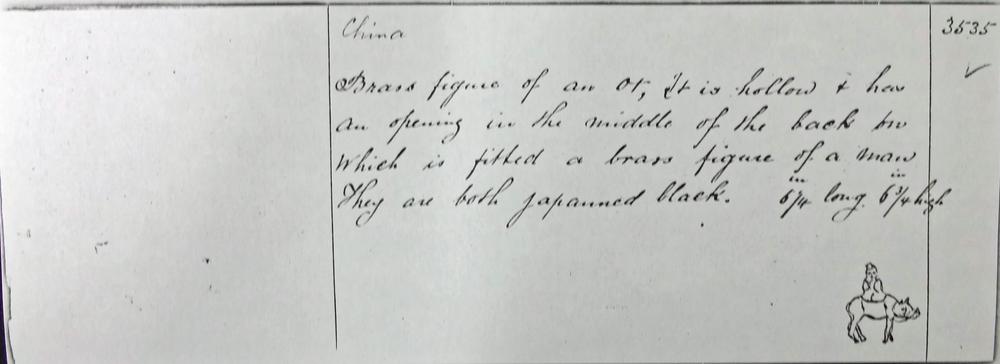 China
3535
Brass figure of an ox, It is hollow & has
an opening in the middle of the back on
which is fitted a brass figure of a man
They are both japanned black. 6 1/4 in long 6 3/4 in high